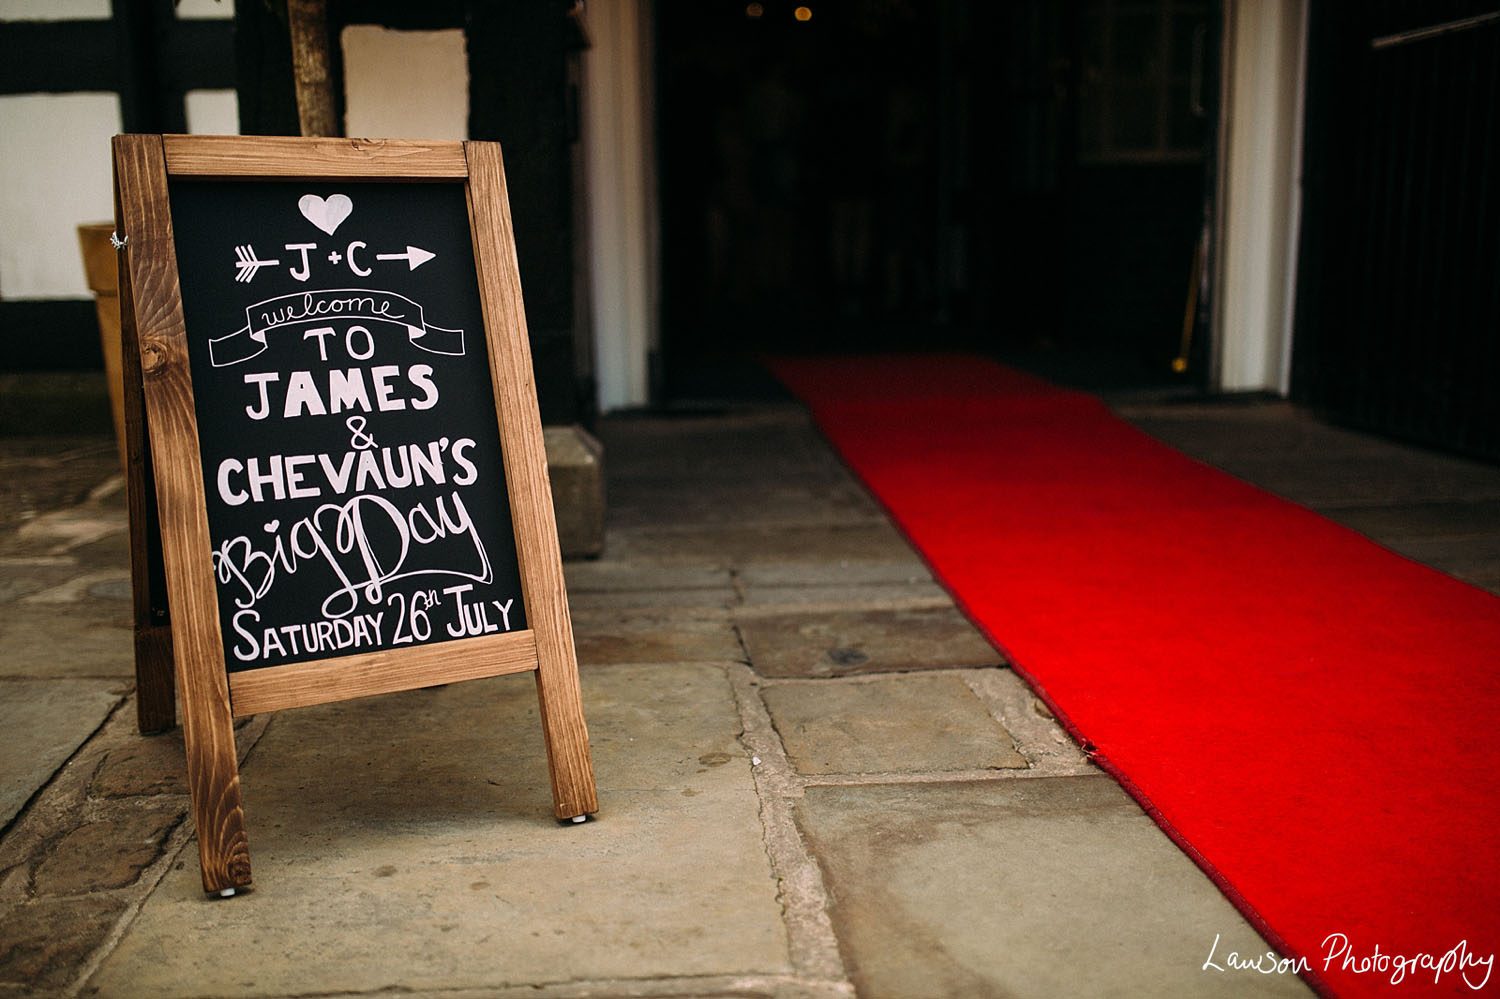 J + C
welcome
TO
JAMES
&
CHEVAUN'S
Big Day
SATURDAY 26th JULY
Lawson Photography